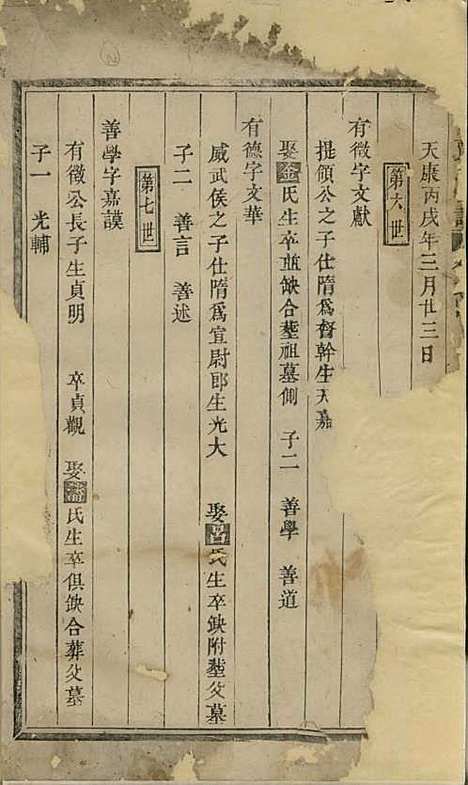 天康丙戌年三月廿三日
第六世
有徵字文獻
提領公之子仕隋為督幹生天嘉
娶金氏生卒並缺合塟祖墓側 子二 善學 善道
有德字文華
威武侯之子仕隋爲宣尉郎生光大 娶呂氏生卒缺附塟父墓
子二 善言 善述
第七世
善學字嘉謨
有徵公長子生貞明 卒貞觀 娶潘氏生卒俱缺合葬父墓
子一 光輔